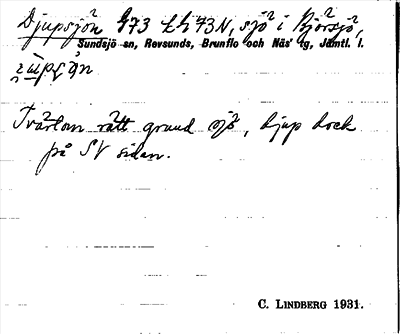 Djupsjön G73 Lh 73N, sjö i Björsjö,
Sundsjö sn, Revsunds, Brunflo och Näs' tg, Jämtl. l.
Tvärtom rätt grund sjö, djup dock
på SV sidan.
C. LINDBERG 1931.